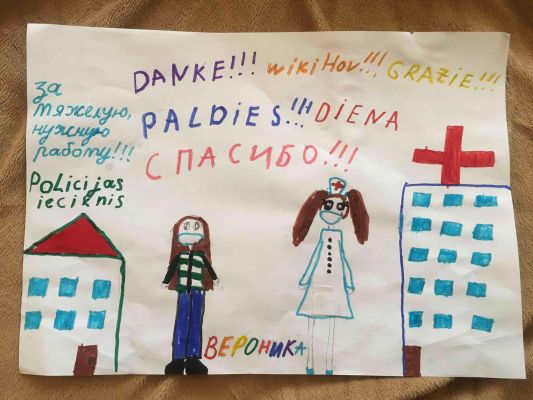 DANKE!!! wikiHov!!! GRAZIE!!!
PALDIES!!! DIENA
СПАСИБО!!!
За
тяжелую,
нужную
работу!!!
Policijas
iecirknis
ВЕРОНИКА